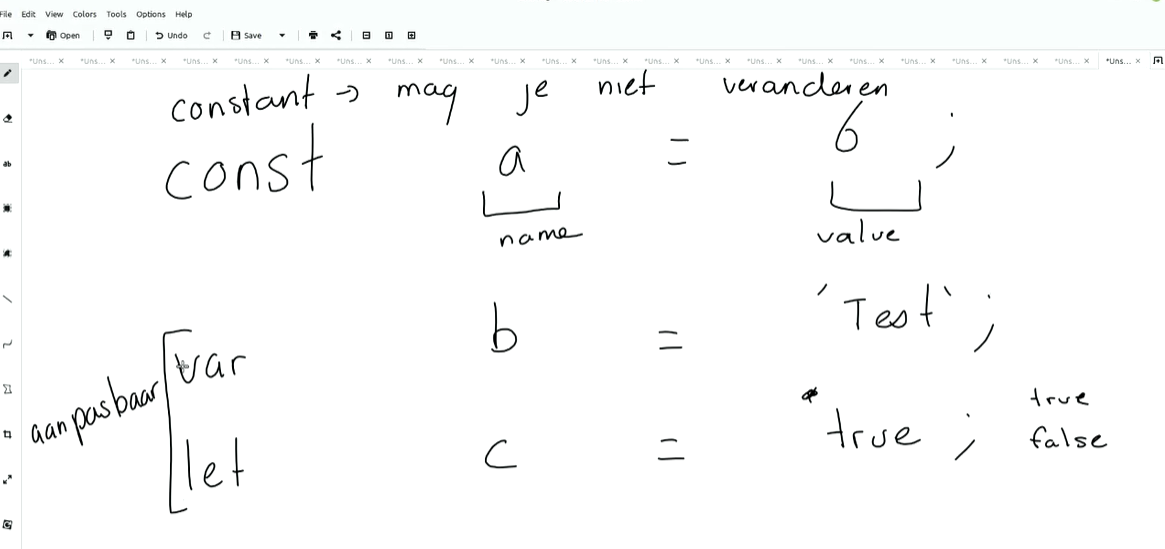 File Edit View Colors Tools Options Help
Open Undo Save
*Uns... × *Uns... × *Uns... × *Uns... × *Uns... × *Uns... × *Uns... × *Uns... × *Uns... × *Uns... × *Uns... × *Uns... × *Uns... × *Uns... × *Uns... × *Uns... × *Uns... × *Uns... × *Uns... × *Uns... × *Uns... × *Uns... ×
constant → mag je niet veranderen
const a = 6 ;
name value
var b = 'Test' ;
aanpasbaar
let c = true ;
true
false
ab